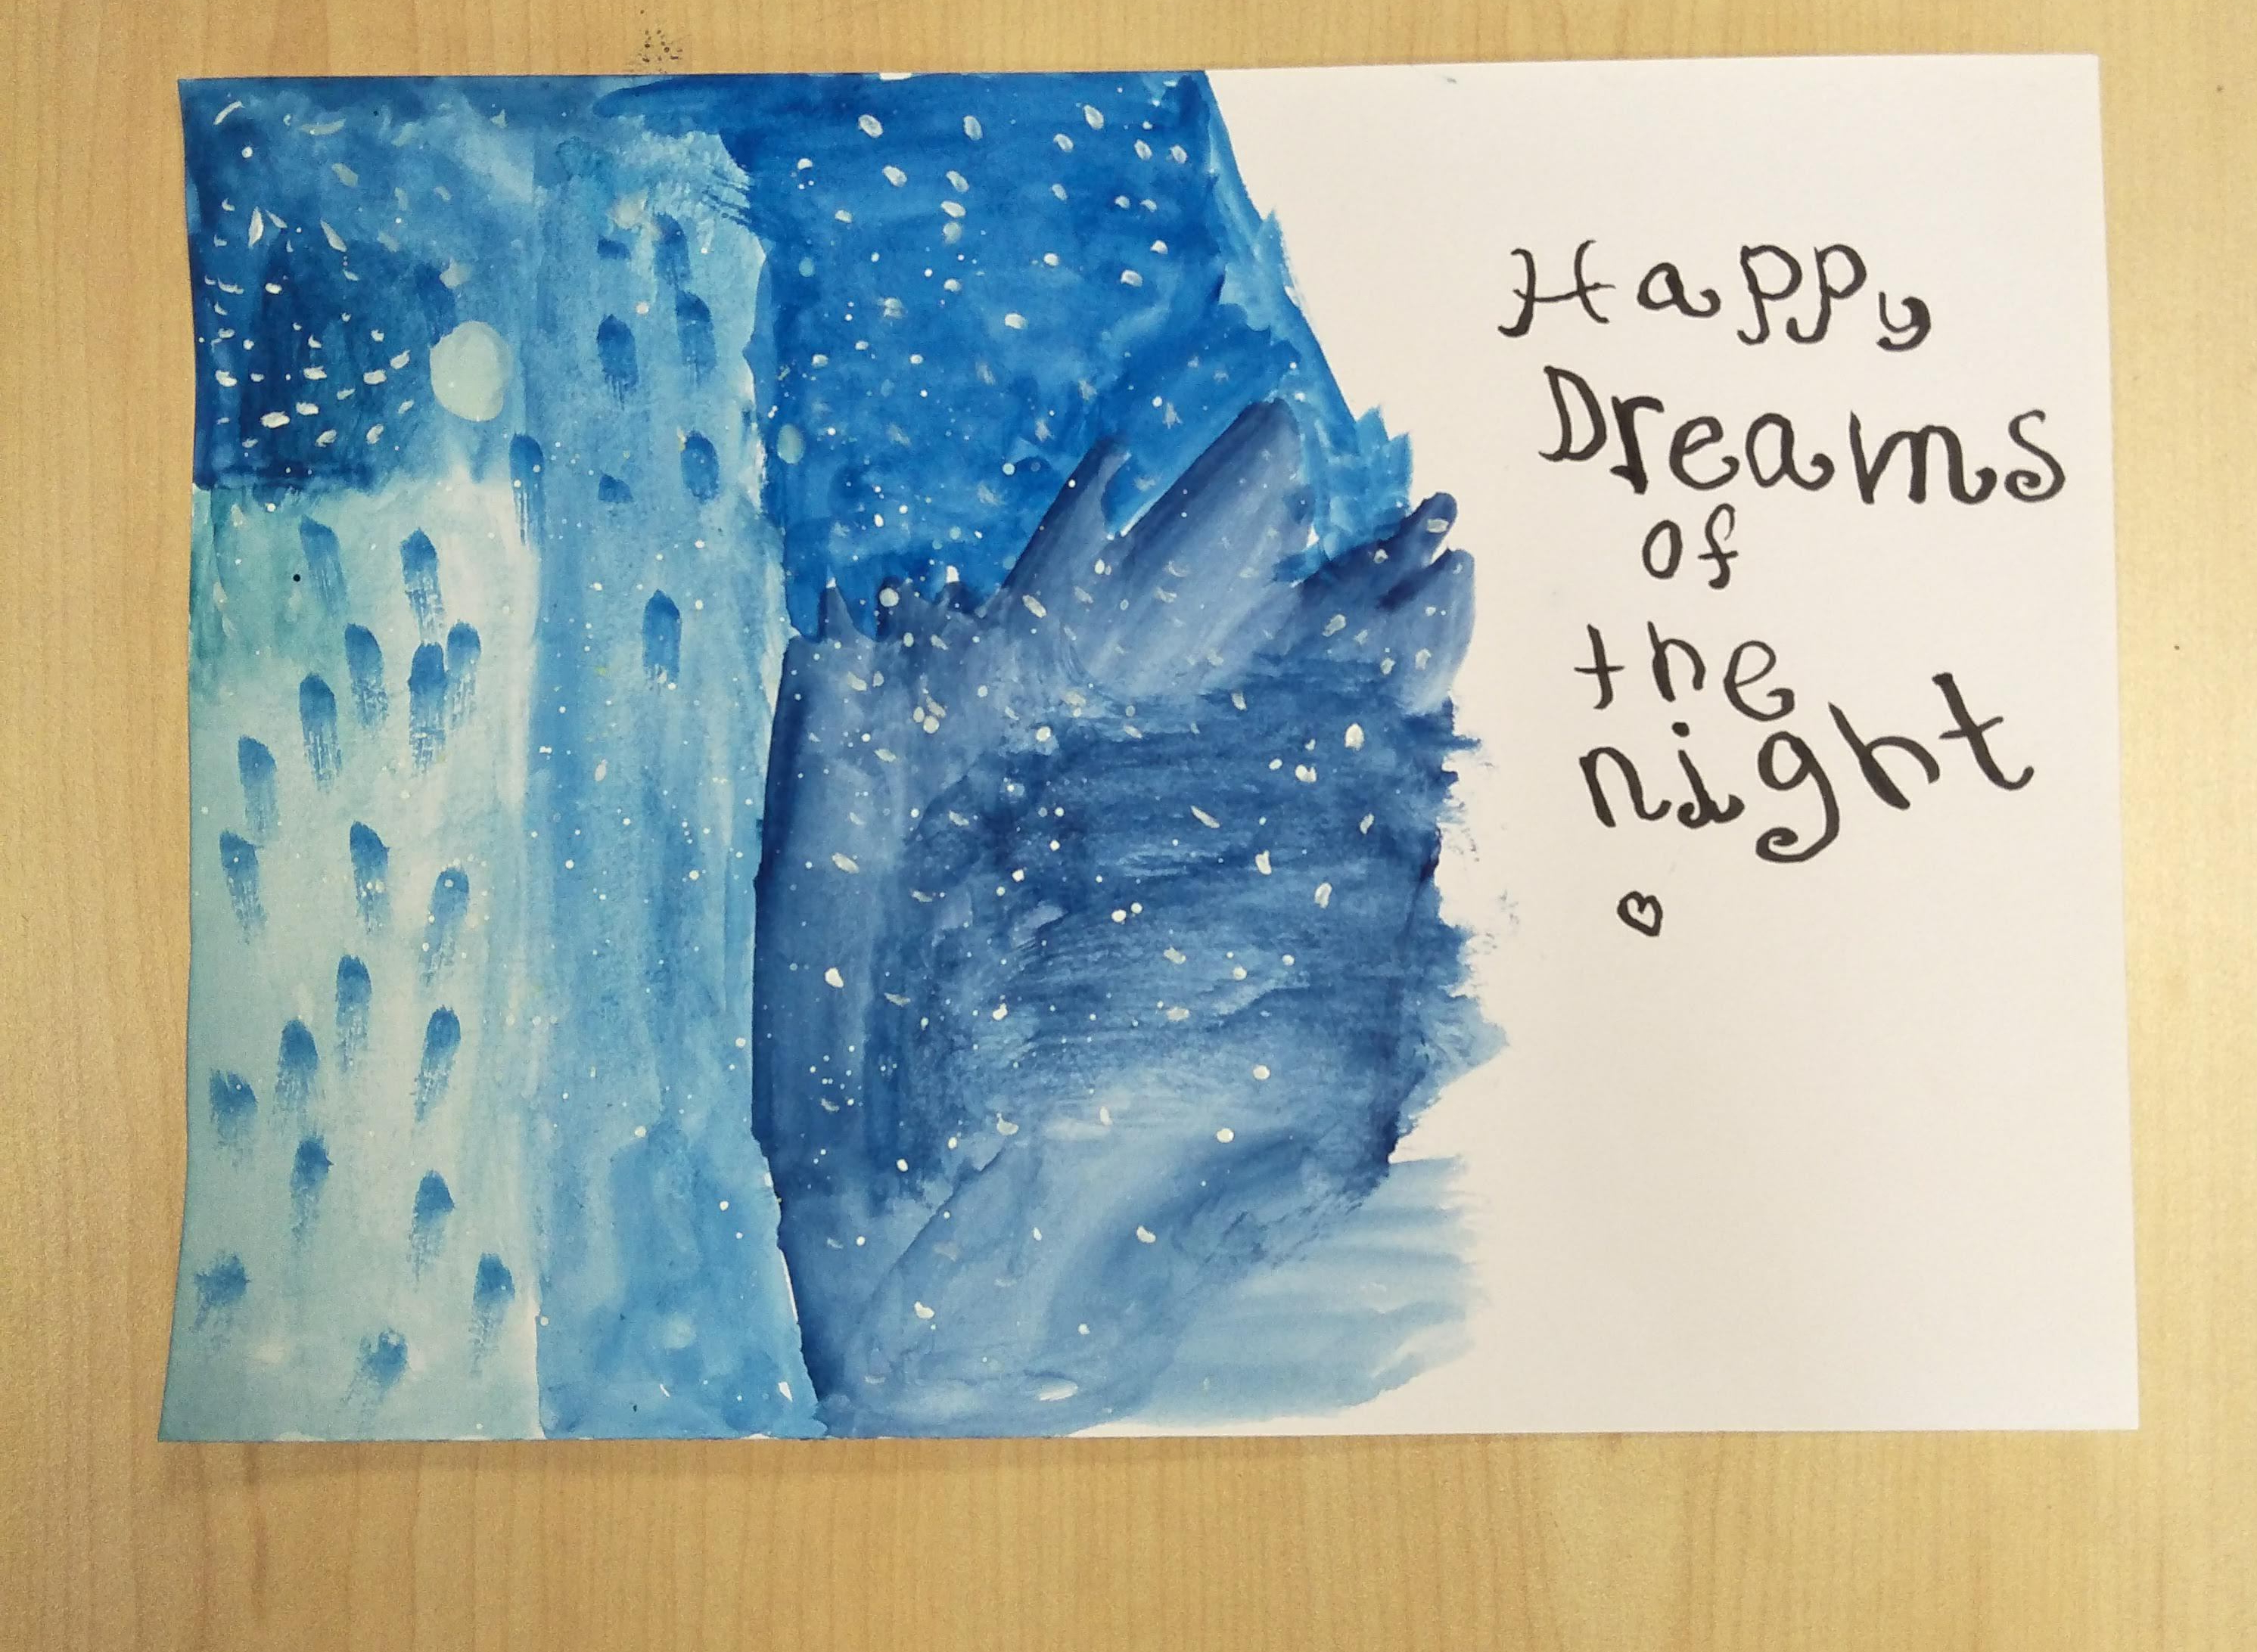 Happy
Dreams
of
the
night